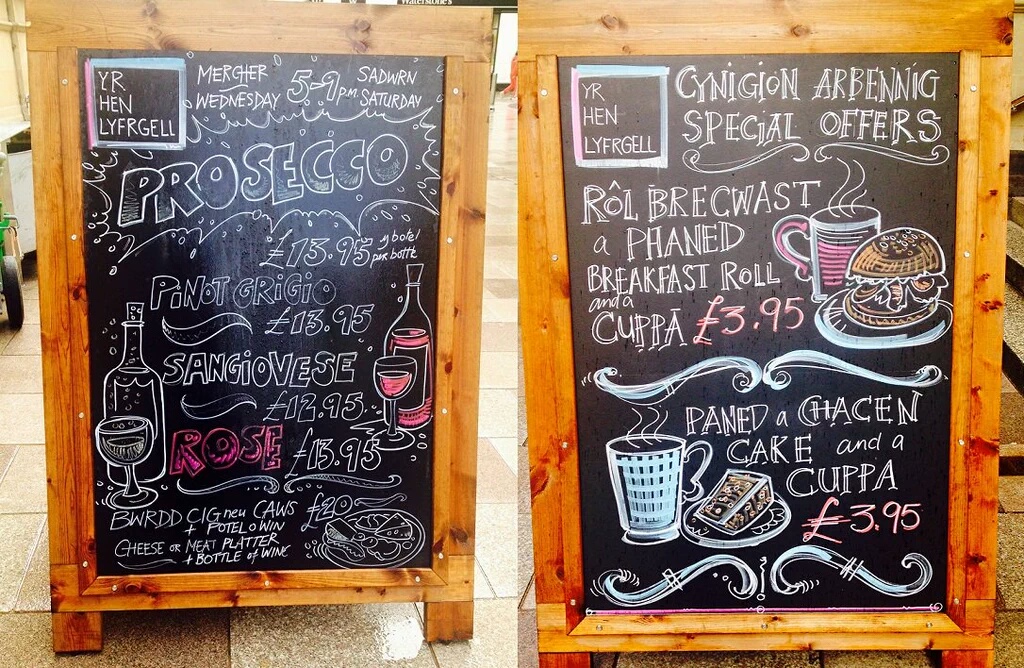 Waterstone's
YR
HEN
LYFRGELL
MERCHER
WEDNESDAY
5-9 P.M.
SADWRN
SATURDAY
PROSECCO
£13.95 y botel
per bottle
PINOT GRIGIO
£13.95
SANGIOVESE
£12.95
ROSE £13.95
BWRDD CIG neu CAWS
+ POTEL O WIN
£20
CHEESE OR MEAT PLATTER
+ BOTTLE of WINE
YR
HEN
LYFRGELL
CYNIGION ARBENNIG
SPECIAL OFFERS
RÔL BRECWAST
a PHANED
BREAKFAST ROLL
and a
CUPPA £3.95
PANED a CHACEN
CAKE and a
CUPPA
£3.95